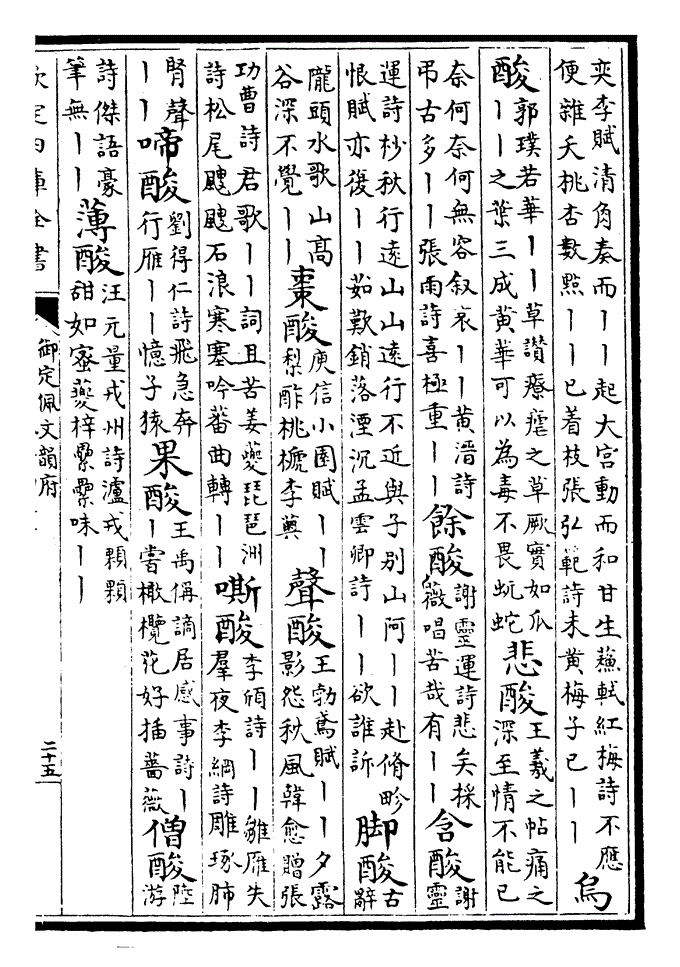 奕李賦清角奏而丨丨起大宫動而和甘生蘓軾紅梅詩不應
便雜夭桃杏數㸃丨丨已着枝張弘範詩未黄梅子已丨丨
烏
酸
郭璞若華丨丨草讃療瘧之草厥實如瓜
丨丨之葉三成黄華可以為毒不畏蚖蛇
悲酸
王羲之帖痛之
深至情不能已
奈何奈何無容叙哀丨丨黄溍詩
弔古多丨丨張雨詩喜極重丨丨
餘酸
謝靈運詩悲矣採
薇唱苦哉有丨丨
含酸
謝
靈
運詩杪秋行逺山山逺行不近與子别山阿丨丨赴脩畛
恨賦亦復丨丨茹歎銷落湮沉孟雲卿詩丨丨欲誰訴
脚酸
古
辭
隴頭水歌山髙
谷深不覺丨丨
棗酸
庾信小園賦丨丨
梨酢桃榹李薁
聲酸
王勃鳶賦丨丨夕露
影怨秋風韓愈贈張
功曹詩君歌丨丨詞且苦姜夔琵琶洲
詩松尾颼颼石浪寒塞吟蕃曲轉丨丨
嘶酸
李頎詩丨丨雛雁失
羣夜李綱詩雕琢肺
腎聲
丨丨
啼酸
劉得仁詩飛急奔
行雁丨丨憶子猿
果酸
王禹偁謫居感事詩丨
丨嘗橄欖花好插薔薇
僧酸
陸
游
詩傑語豪
筆無丨丨
薄酸
汪元量戎州詩瀘戎顆顆
甜如蜜夔梓纍纍味丨丨
欽定四庫全書
御定佩文韻府
二十五